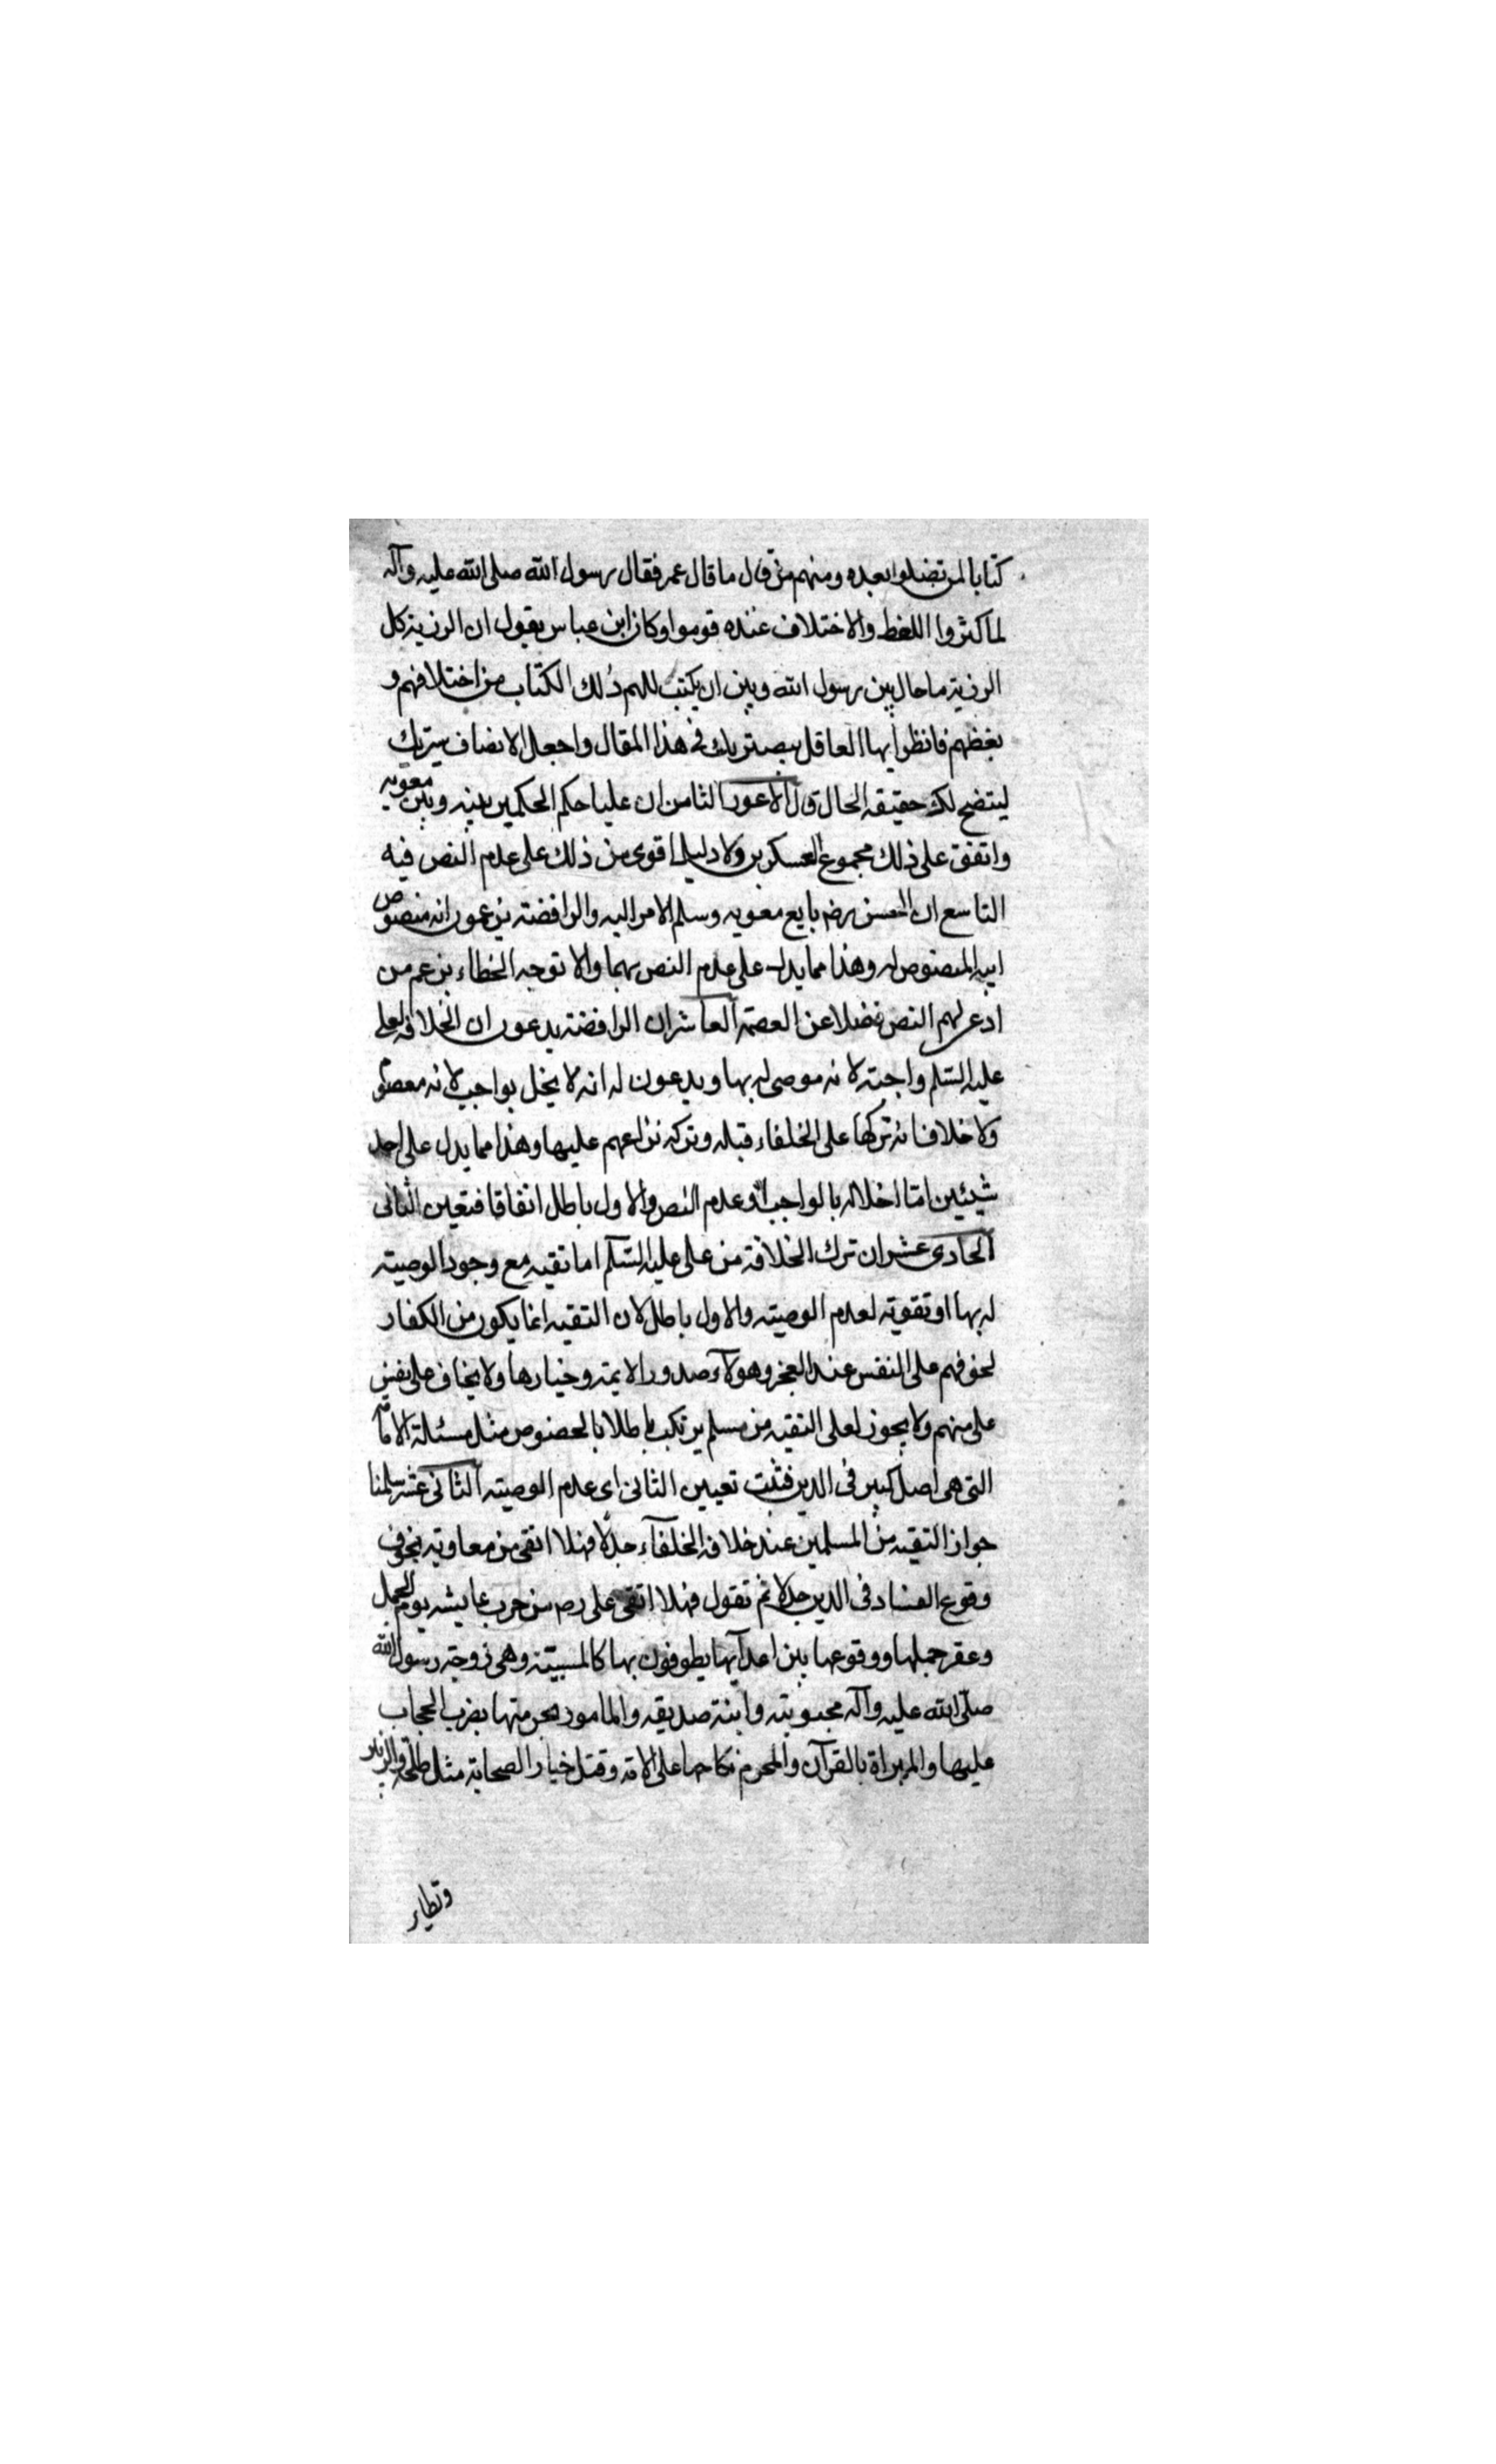 كتابا لن تضلوا بعده ومنهم من قال ما قال عمر فقال رسول الله صلى الله عليه وآله
لما كثروا اللغط والاختلاف عنده قوموا وكان ابن عباس يقول ان الرزية كل
الرزية ما حال بين رسول الله وبين ان يكتب للهم ذلك الكتاب من اختلافهم و
لغطهم فانظر ايها العاقل ببصيرتك في هذا المقال واجعل الانصاف سيرتك
ليتضح لك حقيقة الحال قال الاعور الثامن ان عليا حكم الحكمين بينه وبين معويه
واتفق على ذلك مجموع العسكرين ولا دليل اقوى من ذلك على عدم النص فيه
التاسع ان الحسن رضه بايع معويه وسلم الامر اليه والرافضة يزعمون انه منصوص
ابيه المنصوص له وهذا مما يدل على عدم النص بهما والا توجه الخطاء بزعم من
ادعى لهم النص فضلا عن العصمة العاشر ان الرافضة يدعون ان الخلافة لعلى
عليه السلم واجبة لانه موصى له بها ويدعون له انه لا يخل بواجب لانه معصوم
ولا خلاف انه تركها على الخلفاء قبله وتركه نزاعهم عليها وهذا مما يدل على احد
شيئين امّا اخلاله بالواجب او عدم النص والاول باطل اتفاقا فتعين الثانى
الحادى عشر ان ترك الخلافة من على عليه السّلم اما تقيه مع وجود الوصية
له بها او تقوية لعدم الوصية والاول باطل لان التقيه انما يكون من الكفار
لخوفهم على النفس عند العجز وهولاء صدور الايمة وخيارها ولا يخاف على نفس
على منهم ولا يجوز لعلى التقيه من مسلم يرتكب باطلا بالخصوص مثل مسئلة الامامة
التى هى اصل كبير فى الدين فثبت تعيين الثانى اى عدم الوصية الثانى عشر سلمنا
جواز التقيه من المسلمين عند خلافة الخلفآء جدلا فهلا اتقى من معاوية بخوف
وقوع الفساد فى الدين جدلا ثم تقول فهلا اتقى على رضه من حرب عايشه يوم الجمل
وعقر جملها ووقوعها بين اعدآيها يطوفون بها كالمسبية وهى زوجة رسول الله
صلّى الله عليه وآله محبوبته وابنة صديقه والمامور بحرمتها بضرب الحجاب
عليها والمبراة بالقرآن والمحرم نكاحها على الامة وقتل خيار الصحابة مثل طلحة والزبير
ونظاير